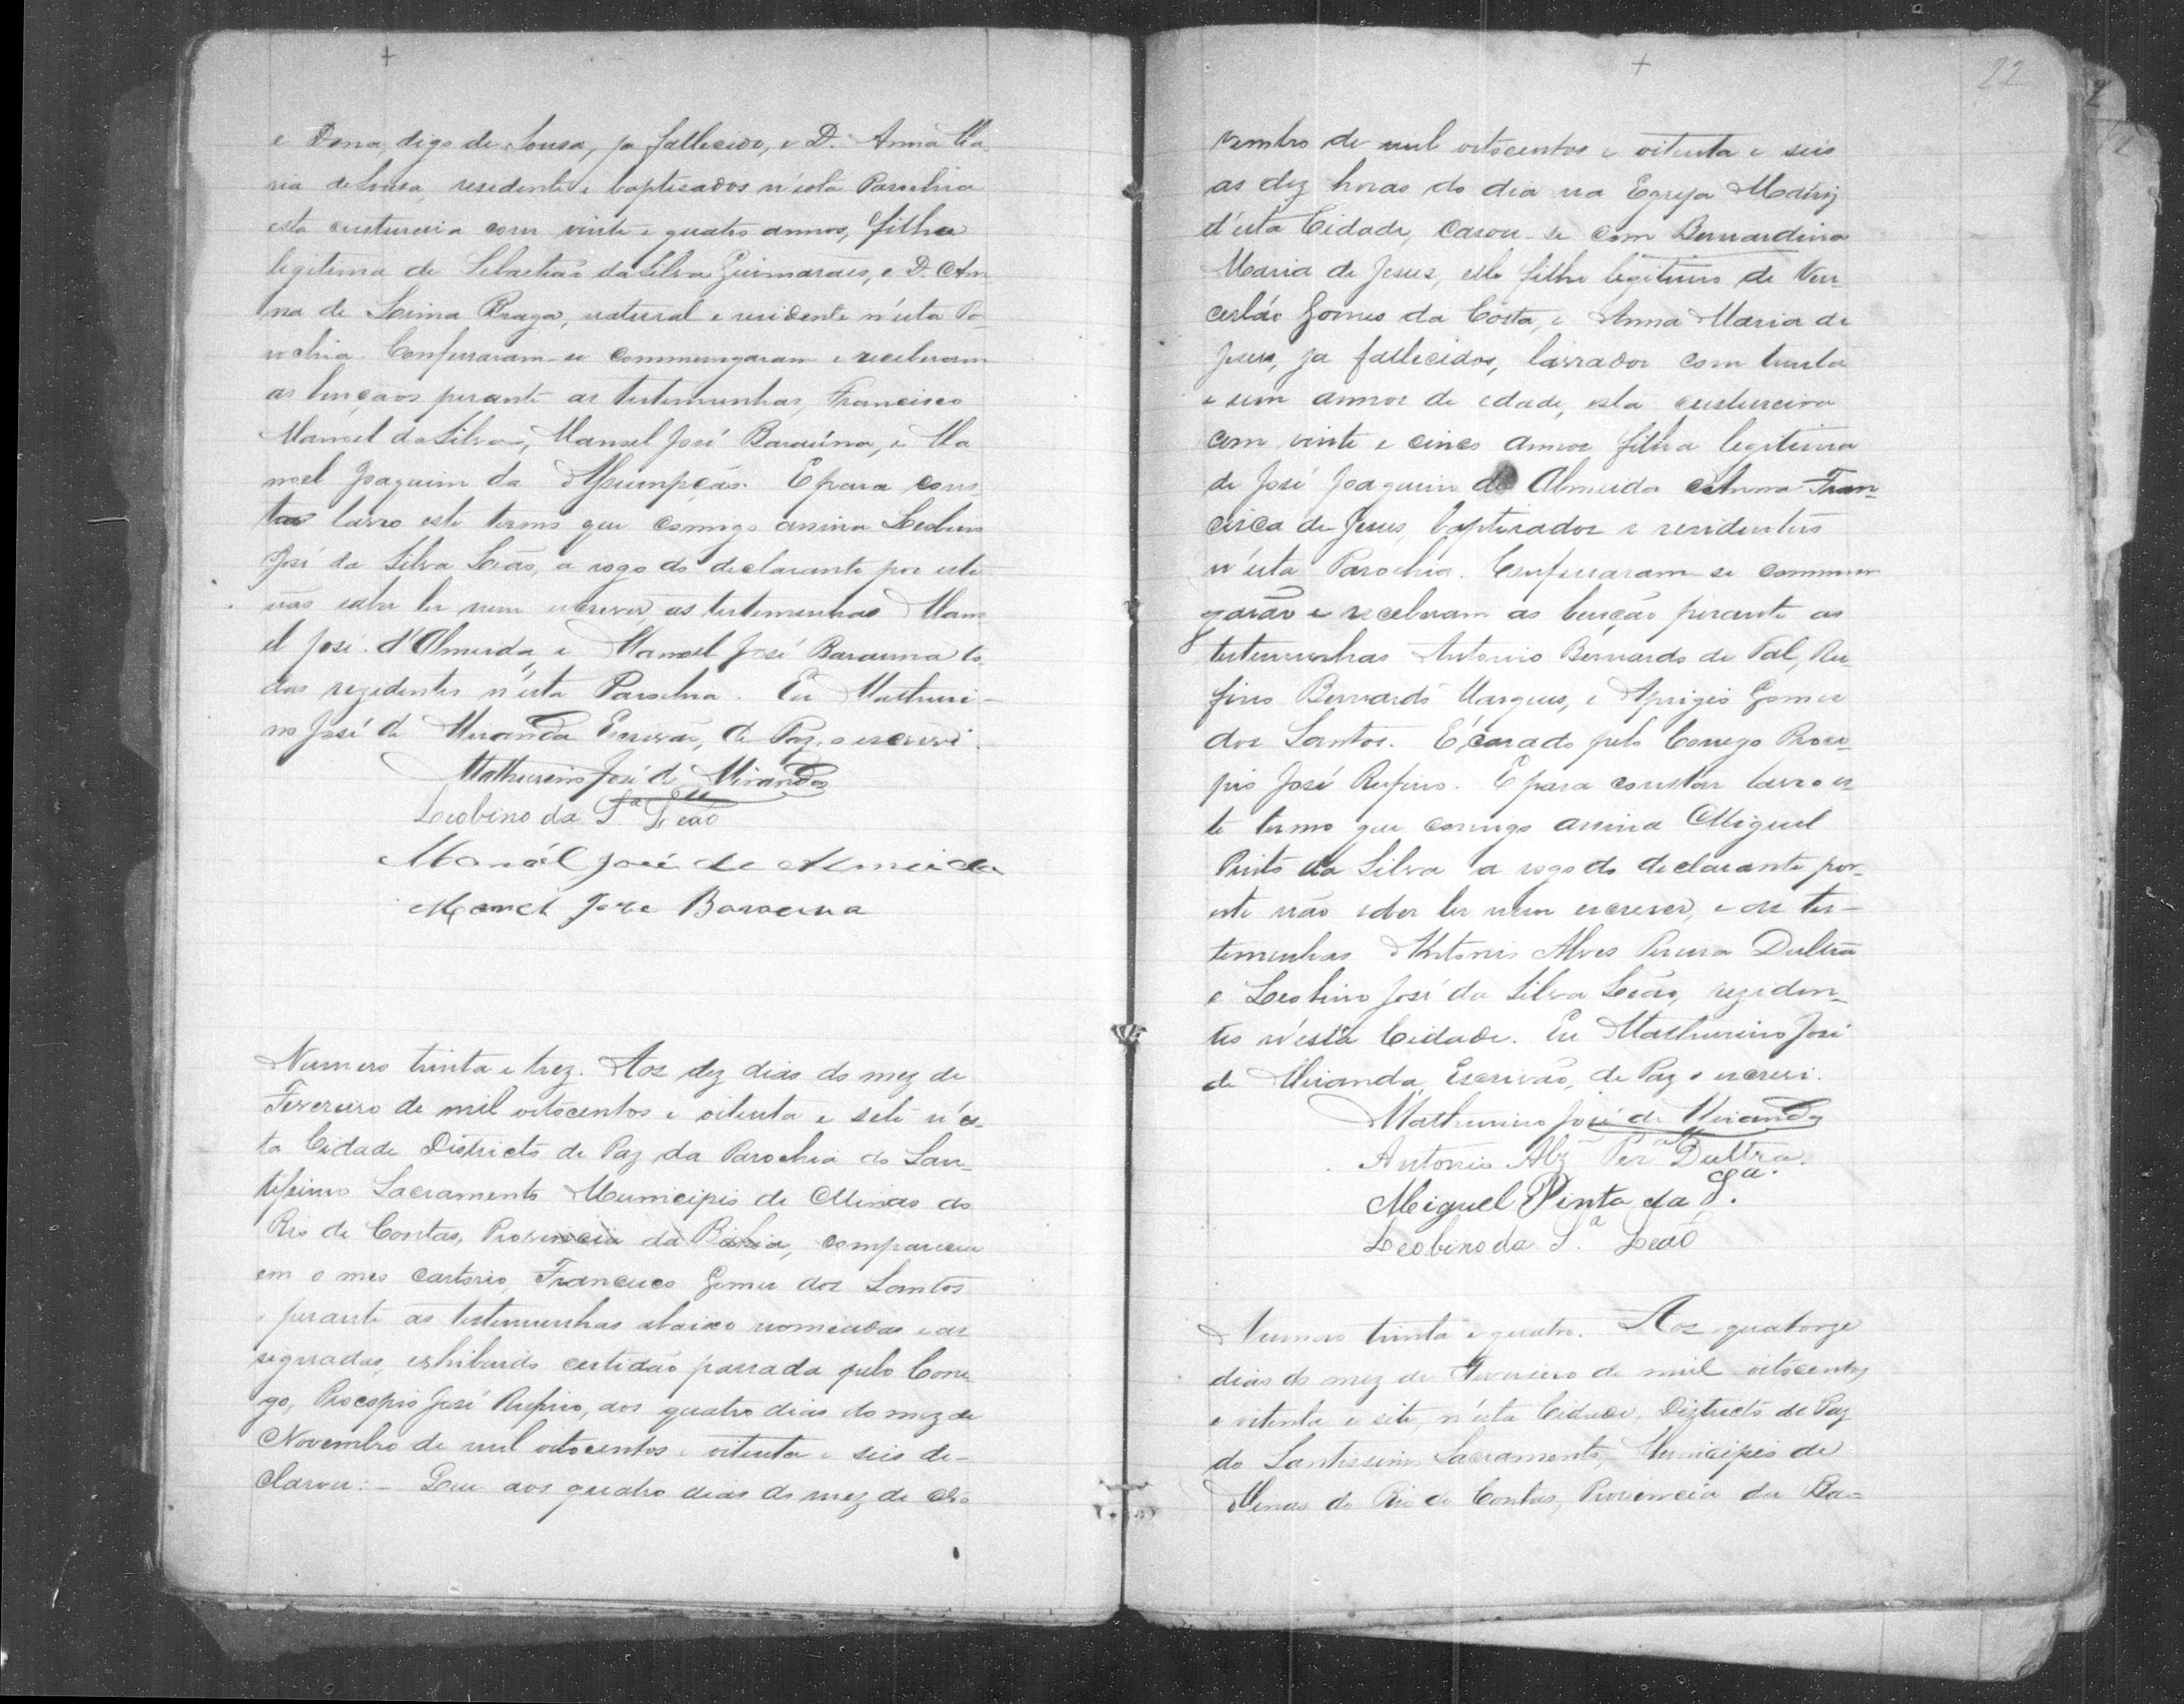 e Dona, digo de Sousa, ja fallecido, e D. Anna Ma-
ria de Sousa, residentes e baptisados n'esta Parochia
esta custureira com vinte e quatro annos, filha
legitima de Sebastião da Silva Guimarães, e D. An-
na de Lima Braga, natural e residente n'esta Pa-
rochia. Confessaram-se commungaram e receberam
as bençãos perante as testemunhas, Francisco
Manoel da Silva, Manoel José Baraúna, e Ma
noel Joaquim da Assumpção. E para cons-
tar lavro este termo que comigo assina Leobino
José da Silva Leão, a rogo do declarante por este
não saber ler nem escrever, as testemunhas Mano
el José d'Almeida, e Manoel José Barauna to-
das rezidentes n'esta Parochia. Eu Mathuri-
no José de Miranda Escrivão, de Paz, o escrevi.
Mathurino José de Miranda
Leobino da S.ª Leão
Manoél José de Almeida
Manoel Joze Barauna
Numero trinta e trez. Aos dez dias do mez de
Fevereiro de mil oitocentos e oitenta e sete n'es-
ta Cidade Districto de Paz da Parochia do San-
tissimo Sacramento Municipio de Minas do
Rio de Contas, Provincia da Bahia, compareceu
em o meo cartorio, Francisco Gomes dos Santos
e perante as testemunhas abaixo nomeadas e as
signadas, exhibindo certidão passada pelo Cone-
go, Procopio José Rufino, aos quatro dias do mez de
Novembro de mil oitocentos e oitenta e seis de-
clarou: - Que aos quatro dias do mez de No
22
vembro de mil oitocentos e oitenta e seis
as dez horas do dia na Egreja Matriz
d'esta Cidade, casou-se com Bernardina
Maria de Jesus, elle filho legitimo de Ven-
ceslao Gomes da Costa, e Anna Maria de
Jesus, ja fallecidos, lavrador com trinta
e um annos de edade, esta custureira
com vinte e cinco annos filha legitima
de José Joaquim de Almeida e Anna Fran-
cisca de Jesus, baptisados e residentes
n'esta Parochia. Confessaram-se commun
garão e receberam as benção perante as
testemunhas Antonio Bernardo de Tal, Ru-
fino Bernardo Marques, e Aprigio Gomes
dos Santos. E casado pelo Conego Proco-
pio José Rufino. E para constar lavro es
te termo que comigo assina Miguel
Pinto da Silva a rogo do declarante por-
este não saber ler nem escrever, e as tes-
temunhas Antonio Alves Pereira Dultra
e Leobino José da Silva Leão, reziden-
tes n'esta Cidade. Eu Mathurino José
de Miranda, Escrivão, de Paz o escrevi.
Mathurino José de Miranda
Antonio Alz Perª Dultra.
Miguel Pinto da Sª.
Leobino da S.ª Leão
Numero trinta e quatro. Aos quatorze
dias do mez de Fevereiro de mil oitocentos
e oitenta e sete, n'esta Cidade, Districto de Paz
do Santissimo Sacramento, Municipio de
Minas do Rio de Contas, Provincia da Ba-